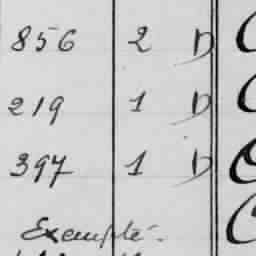 856 2 D
219 1 D
397 1 D
Exempté.